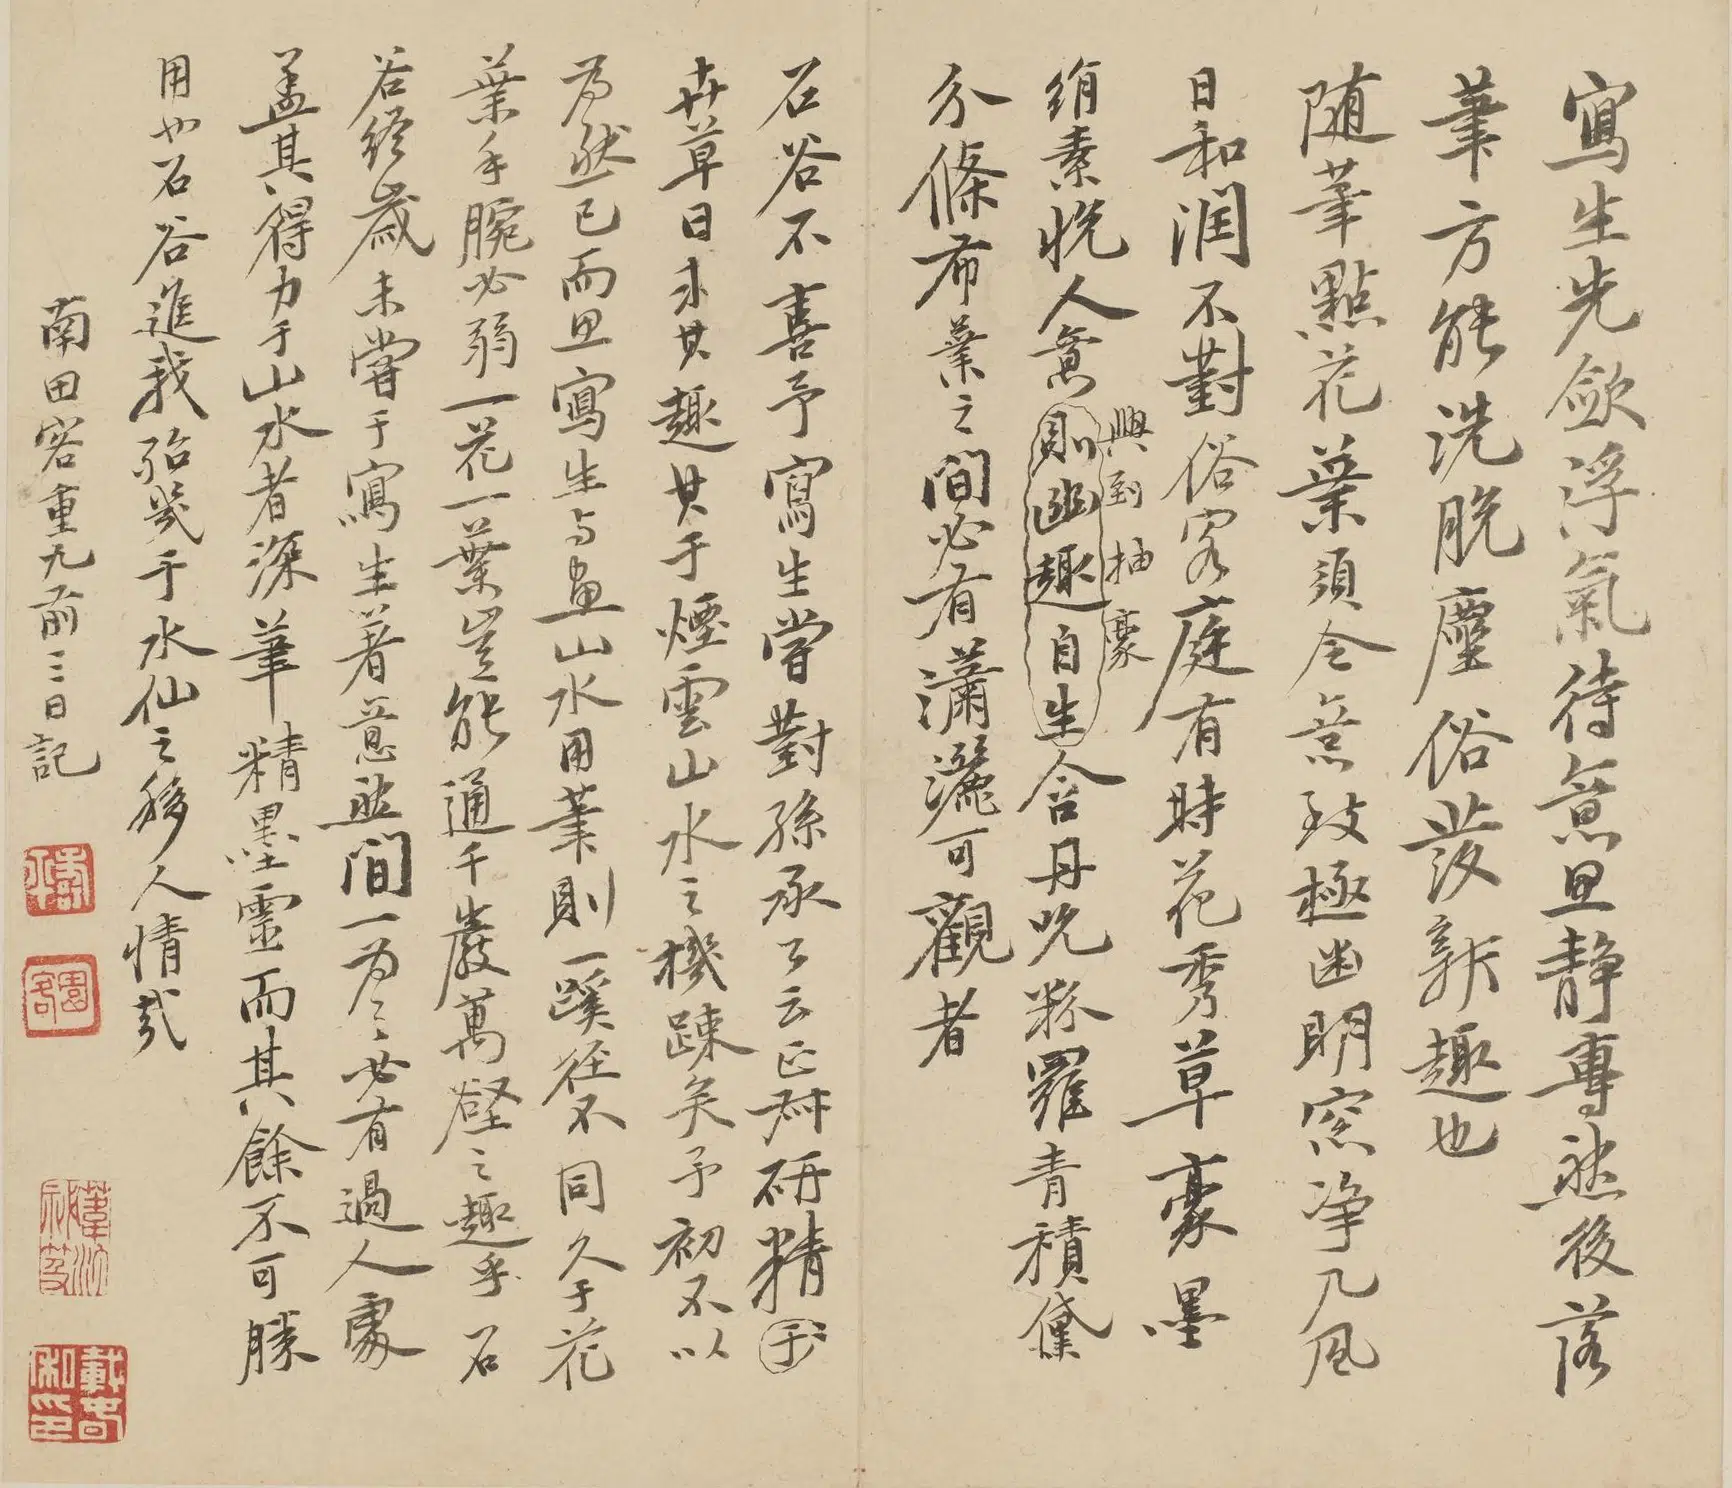 寫生先歛浮氣待意思靜專然後落
筆方能洗脫塵俗發新趣也
隨筆點花葉須令意致極幽明窓净几風
日和潤不對俗客庭有時花秀草豪墨
興到抽豪
絹素恱人意則幽趣自生含丹吮粉羅青積黛
分條布葉之間必有瀟灑可觀者
石谷不喜予寫生嘗對孫承公云正叔研精于
卉草日求其趣其于煙雲山水之機疎矣予初不以
為然已而思寫生与畫山水用筆則一蹊径不同久于花
葉手腕必弱一花一葉豈能通千巖萬壑之趣乎石
谷終歲未嘗于寫生著意然間一為之必有過人處
盖其得力于山水者深筆精墨靈而其餘不可勝
用也石谷進我殆幾于水仙之移人情矣
南田客重九前三日記
園客